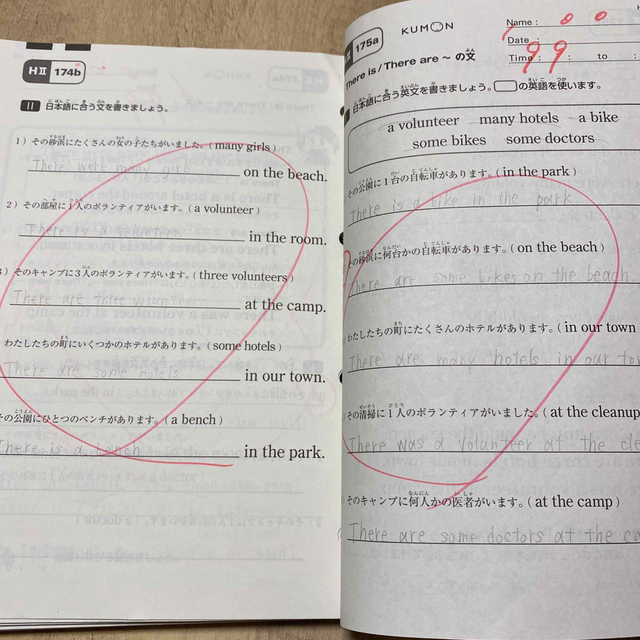 HⅡ 174b
Ⅱ 日本語に合う文を書きましょう。
1）その砂浜にたくさんの女の子たちがいました。（many girls）
There were many girls on the beach.
2）その部屋に1人のボランティアがいます。（a volunteer）
There is a volunteer in the room.
3）そのキャンプに3人のボランティアがいます。（three volunteers）
There are three volunteers at the camp.
わたしたちの町にいくつかのホテルがあります。（some hotels）
There are some hotels in our town.
その公園にひとつのベンチがあります。（a bench）
There is a bench in the park.
175a KUMON
Name :
Date :
Time : : to :
There is / There are ～ の文
日本語に合う英文を書きましょう。 の英語を使います。
a volunteer many hotels a bike
some bikes some doctors
その公園に1台の自転車があります。（in the park）
There is a bike in the park.
その砂浜に何台かの自転車があります。（on the beach）
There are some bikes on the beach
わたしたちの町にたくさんのホテルがあります。（in our town
There are many hotels in our tow
その清掃に1人のボランティアがいました。（at the cleanup
There was a volunteer at the cle
そのキャンプに何人かの医者がいます。（at the camp）
There are some doctors at the ca